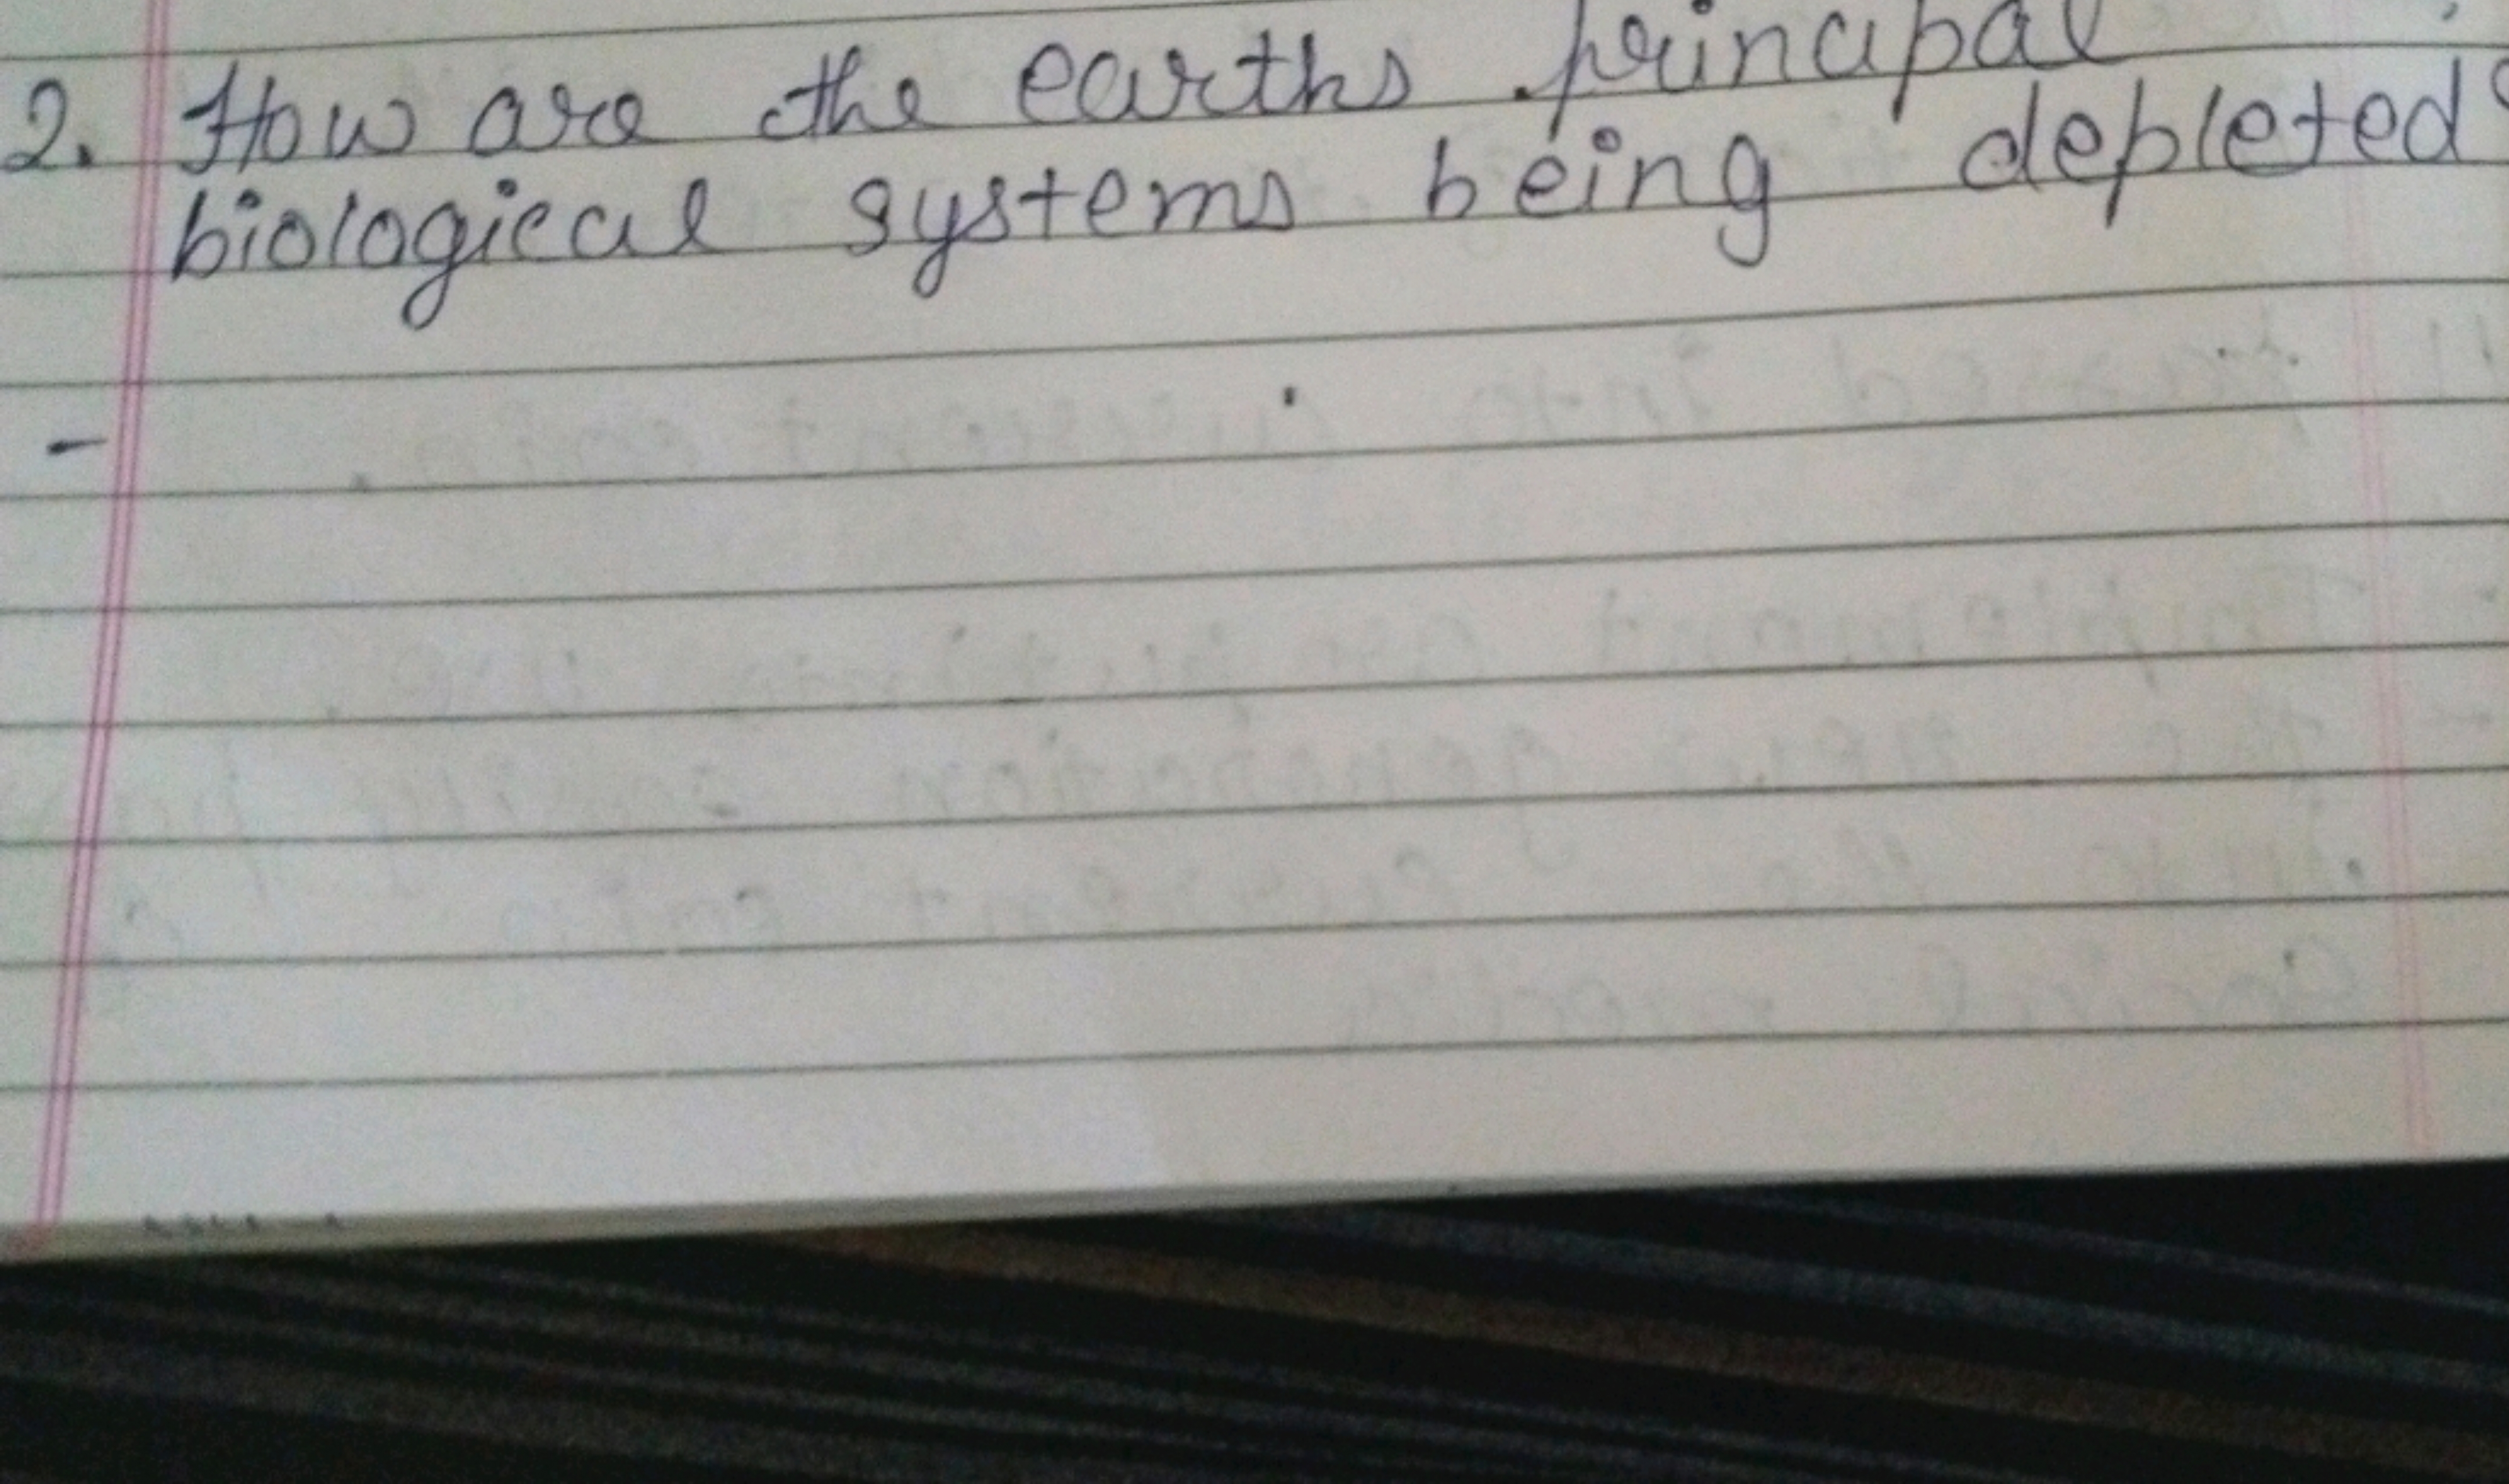 2. How are the earths principal
biological systems being depleted?
-